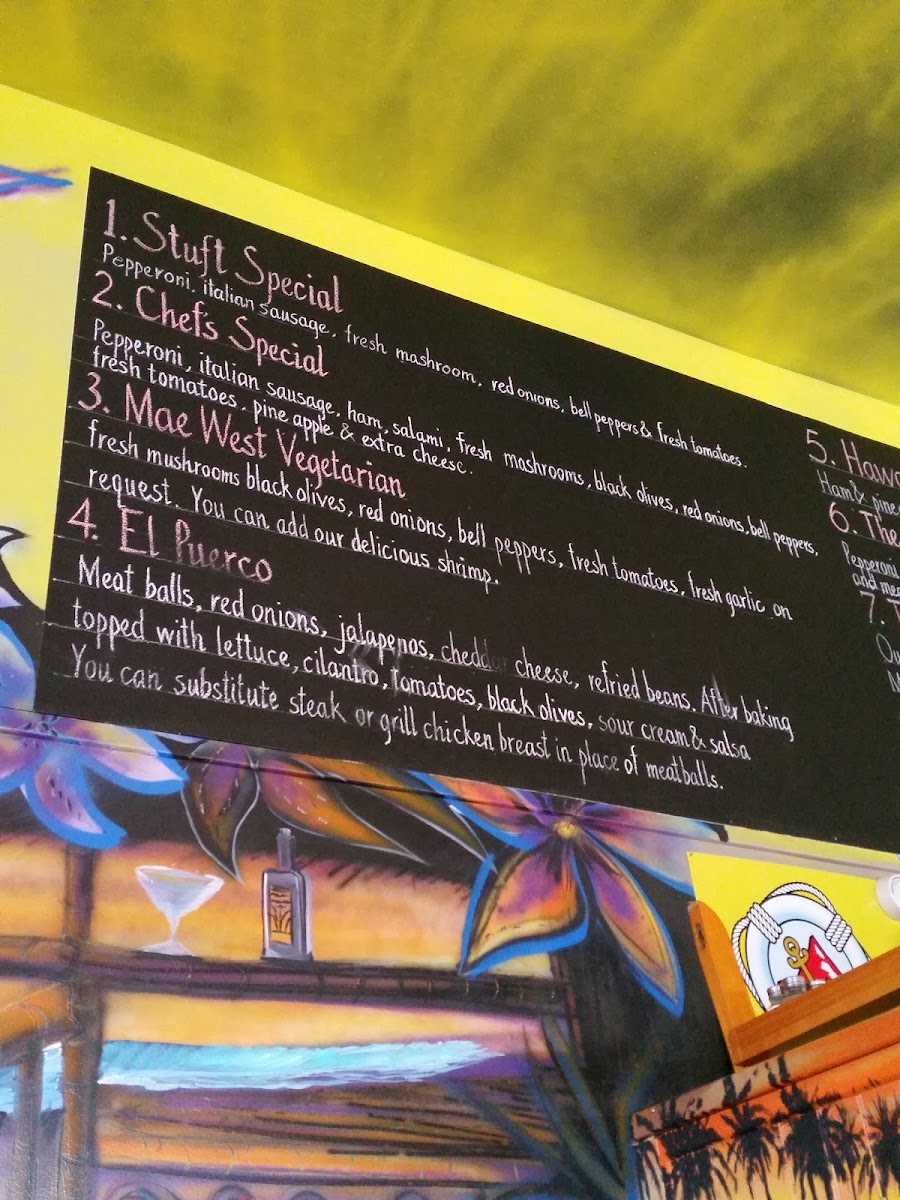 1. Stuft Special
Pepperoni, italian sausage, fresh mashroom, red onions, bell peppers & fresh tomatoes.
2. Chef's Special
Pepperoni, italian sausage, ham, salami, fresh mashrooms, black olives, red onions, bell peppers,
fresh tomatoes, pine apple & extra cheese.
3. Mae West Vegetarian
fresh mushrooms black olives, red onions, bell peppers, fresh tomatoes, fresh garlic on
request. You can add our delicious shrimp.
4. El Puerco
Meat balls, red onions, jalapenos, cheddar cheese, refried beans. After baking
topped with lettuce, cilantro, tomatoes, black olives, sour cream & salsa
You can substitute steak or grill chicken breast in place of meatballs.
5.
Ham &
6. The
Pepperoni
and
7.